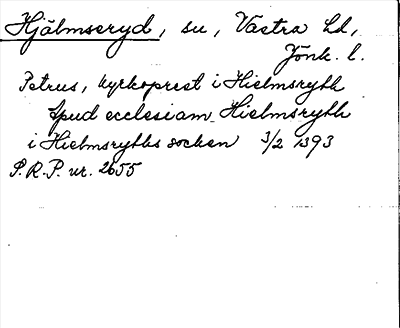 Hjälmseryd, sn, Västra hd,
Jönk. l.
Petrus, kyrkoprest i Hielmsryth
apud ecclesiam Hielmsryth
i Hielmsryths socken 3/2 1393
P.R.P. nr. 2655